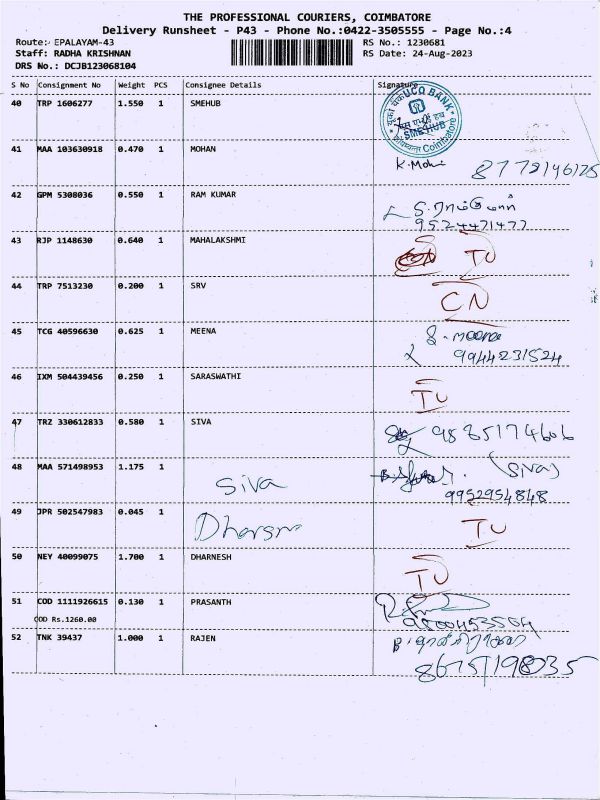 THE PROFESSIONAL COURIERS, COIMBATORE
Delivery Runsheet - P43 - Phone No.:0422-3505555 - Page No.:4
Route:- EPALAYAM-43 RS No.: 1230681
Staff: RADHA KRISHNAN RS Date: 24-Aug-2023
DRS No.: DCJB123068104
S No Consignment No Weight PCS Consignee Details Signature
40 TRP 1606277 1.550 1 SMEHUB
UCO BANK
SMEHUB
Coimbatore
41 MAA 103630918 0.470 1 MOHAN K. Mohan
42 GPM 5308036 0.550 1 RAM KUMAR
9524471477
43 RJP 1148630 0.640 1 MAHALAKSHMI TU
44 TRP 7513230 0.200 1 SRV CN
45 TCG 40596630 0.625 1 MEENA S. Meena
9944231524
46 IXM 504439456 0.250 1 SARASWATHI TU
47 TRZ 330612833 0.580 1 SIVA 9885174606
48 MAA 571498953 1.175 1 Siva (Siva)
9952954848
49 JPR 502547983 0.045 1 TU
50 NEY 40099075 1.700 1 DHARNESH TU
51 COD 1111926615 0.130 1 PRASANTH
COD Rs.1260.00 9800453504
52 TNK 39437 1.000 1 RAJEN